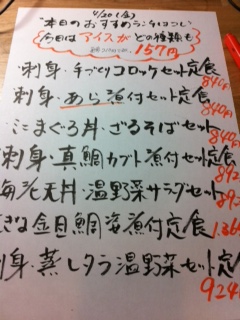 4/20(金)
本日のおすすめランチはこい
今日はアイスがどの種類も
157円
刺身・手づくりコロッケセット定食 840円
刺身・あら煮付セット定食 840円
まぐろ丼・ざるそばセット 840円
刺身・真鯛カブト煮付セット定食 892
海老天丼・温野菜サラダセット 892
きな金目鯛姿煮付定食 1,365
刺身・蒸しタラ温野菜セット定食 924